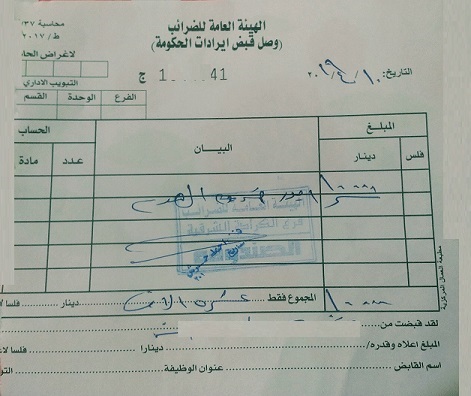 الهيئة العامة للضرائب
(وصل قبض إيرادات الحكومة)
محاسبة ٣٧/
ط/ ٢٠١٧
لاغراض الحا
التبويب الاداري
الفرع الوحدة القسم
التاريخ: ٢٠١٩/٤/١٠
ج 1.....41
المبلغ البيان الحساب
فلس دينار عدد مادة
١٠٠٠٠
الهيئة العامة للضرائب
فرع الكرادة الشرقية
الصندوق
١٠٠٠٠ المجموع فقط عشرة الاف دينار فلسا لا
لقد قبضت من
المبلغ اعلاه وقدره/ دينارا فلسا لاغ
اسم القابض عنوان الوظيفة التو
مطبعة العمال المركزية